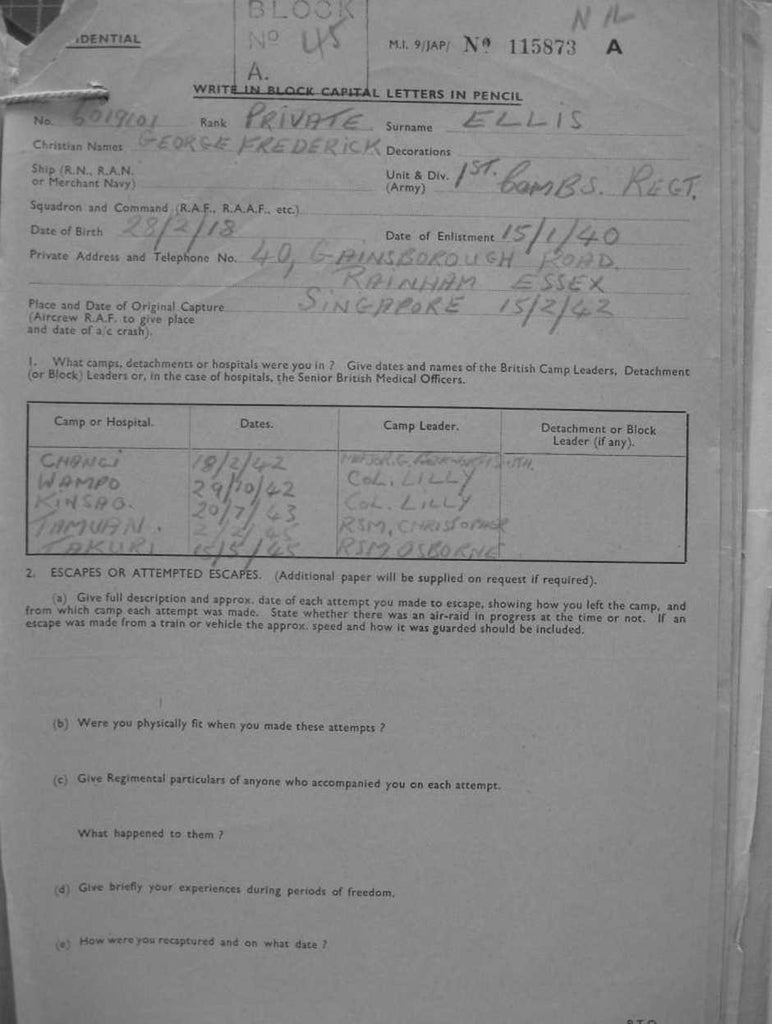 DENTIAL
BLOCK
No 45
A.
M.I. 9/JAP/ No 115873 A
WRITE IN BLOCK CAPITAL LETTERS IN PENCIL
No. 6019101 Rank PRIVATE Surname ELLIS
Christian Names GEORGE FREDERICK Decorations
Ship (R.N., R.A.N. or Merchant Navy)
Unit & Div. (Army) 1ST. CAMBS. REGT.
Squadron and Command (R.A.F., R.A.A.F., etc.)
Date of Birth 28/2/18 Date of Enlistment 15/1/40
Private Address and Telephone No. 40, GAINSBOROUGH ROAD.
RAINHAM ESSEX
Place and Date of Original Capture SINGAPORE 15/2/42
(Aircrew R.A.F. to give place
and date of a/c crash).
1. What camps, detachments or hospitals were you in ? Give dates and names of the British Camp Leaders, Detachment
(or Block) Leaders or, in the case of hospitals, the Senior British Medical Officers.
Camp or Hospital. Dates. Camp Leader. Detachment or Block Leader (if any).
CHANGI 18/2/42
WAMPO 29/10/42 COL. LILLY
KINSAO. 20/7/43 COL. LILLY
TAMUAN. 2/2/45 RSM, CHRISTOPHER
TAKURI 15/5/45 RSM OSBORNE
2. ESCAPES OR ATTEMPTED ESCAPES. (Additional paper will be supplied on request if required).
(a) Give full description and approx. date of each attempt you made to escape, showing how you left the camp, and
from which camp each attempt was made. State whether there was an air-raid in progress at the time or not. If an
escape was made from a train or vehicle the approx. speed and how it was guarded should be included.
(b) Were you physically fit when you made these attempts ?
(c) Give Regimental particulars of anyone who accompanied you on each attempt.
What happened to them ?
(d) Give briefly your experiences during periods of freedom.
(e) How were you recaptured and on what date ?